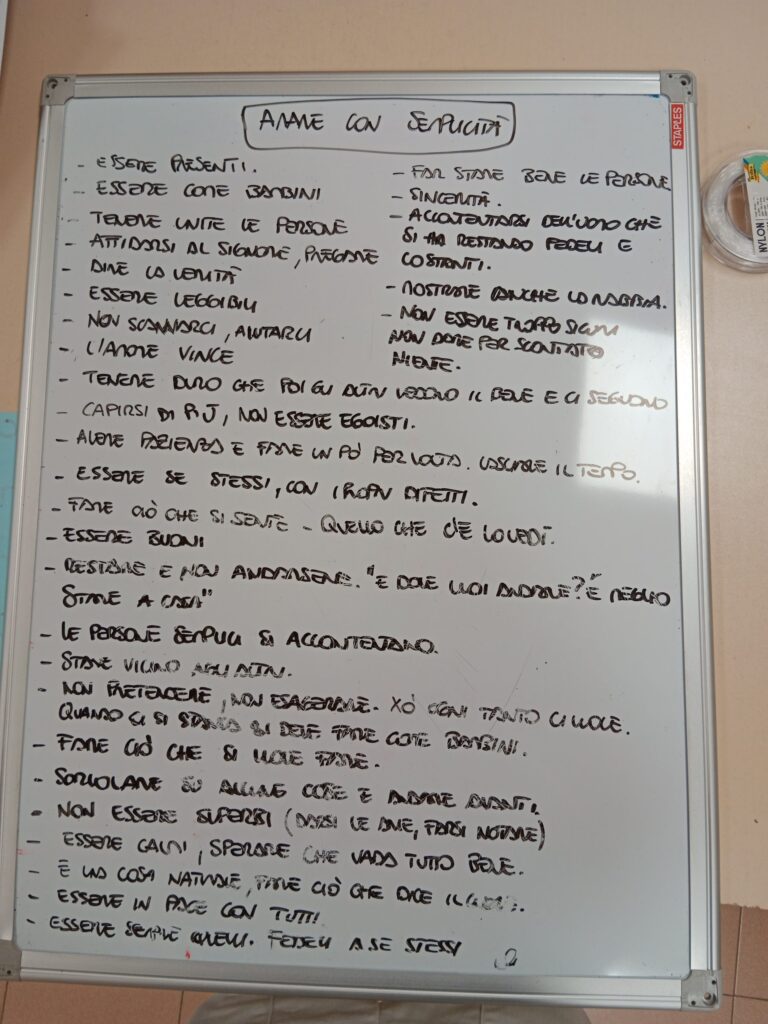 AMARE CON SEMPLICITÀ
- ESSERE PRESENTI.
- ESSERE COME BAMBINI
- TENERE UNITE LE PERSONE
- AFFIDARSI AL SIGNORE, PREGARE
- DIRE LA VERITÀ
- ESSERE LEGGIBILI
- NON SCANNARCI, AIUTARCI
- L'AMORE VINCE
- FAR STARE BENE LE PERSONE
- SINCERITÀ.
- ACCONTENTARSI DELL'UOMO CHE
SI HA RESTANDO FEDELI E
COSTANTI.
- MOSTRARE ANCHE LA RABBIA.
- NON ESSERE TROPPO SICURI
NON DARE PER SCONTATO
NIENTE.
- TENERE DURO CHE POI GLI ALTRI VEDONO IL BENE E CI SEGUONO
- CAPIRSI DI PIÙ, NON ESSERE EGOISTI.
- AVERE PAZIENZA E FARE UN PÒ PER VOLTA. LASCIARE IL TEMPO.
- ESSERE SE STESSI, CON I PROPRI DIFETTI.
- FARE CIÒ CHE SI SENTE - QUELLO CHE C'È LO VEDI.
- ESSERE BUONI
- RESTARE E NON ANDARSENE. "E DOVE VUOI ANDARE? È MEGLIO
STARE A CASA"
- LE PERSONE SEMPLICI SI ACCONTENTANO.
- STARE VICINO AGLI ALTRI.
- NON PRETENDERE, NON ESAGERARE. XÒ OGNI TANTO CI VUOLE.
QUANDO CI SI STANCA SI DEVE FARE COME BAMBINI.
- FARE CIÒ CHE SI VUOLE FARE.
- SORVOLARE SU ALCUNE COSE E ANDARE AVANTI.
- NON ESSERE SUPERBI (DARSI LE ARIE, FARSI NOTARE)
- ESSERE CALMI, SPERARE CHE VADA TUTTO BENE.
- È UNA COSA NATURALE, FARE CIÒ CHE DICE IL CUORE.
- ESSERE IN PACE CON TUTTI
- ESSERE SEMPRE QUELLI. FEDELI A SE STESSI
STAPLES
NYLON